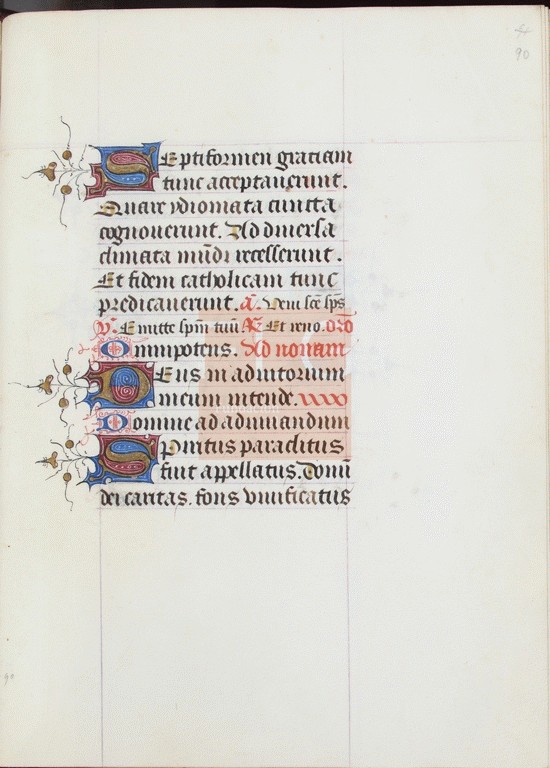 90
Septiformen graciam
tunc acceptauerunt.
Quare ydiomata cuncta
cognouerunt. Ad diuersa
climata mūdi recesserunt.
Et fidem catholicam tunc
predicauerunt. a. Veni sce sps
V. Emitte spm tuū. R. Et reno. oro
Omnipotens. Ad nonam
Deus in adiutorium
meum intende.
Domine ad adiuuandum
Spiritus paraclitus
fuit appellatus. Donū
dei caritas. fons viuificatus
90